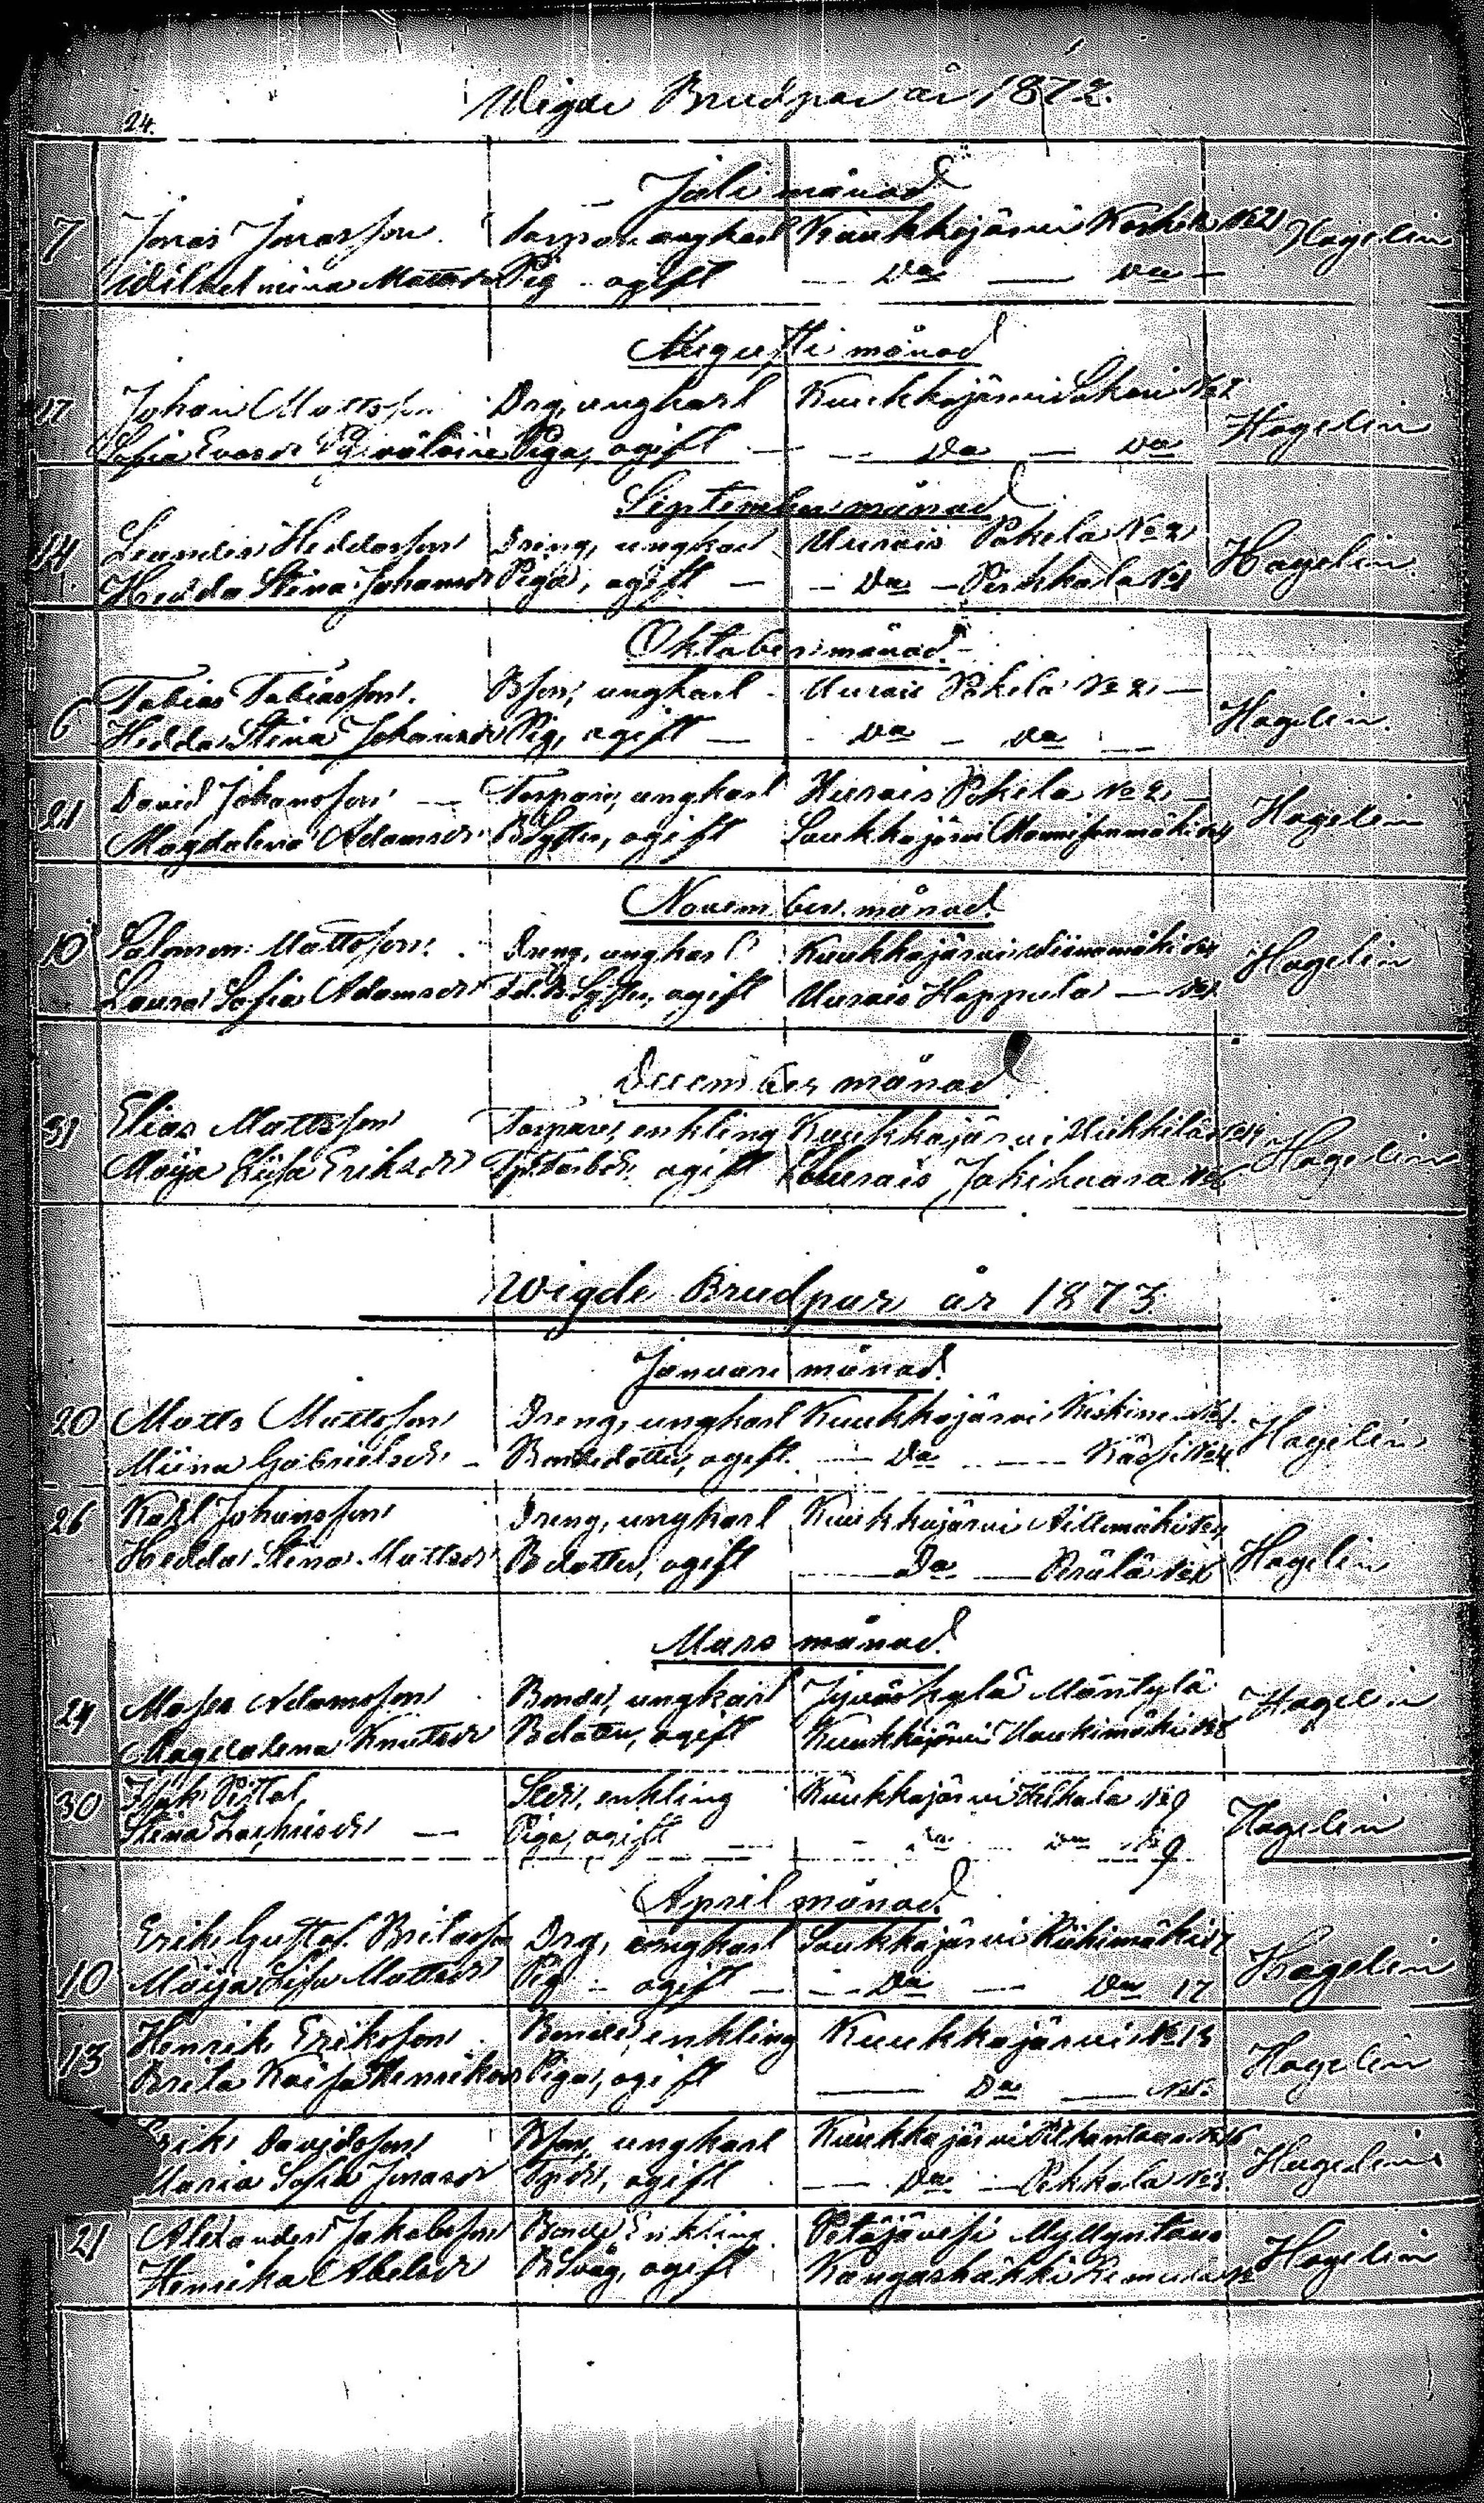 24.
Wigde Brudpar år 1872.
Juli månad
7 Jonas Jonasson. Torpare ungkarl Kuukkajärvi No 21 Hagelin
Wilhelmina Mattsdr Pig - agift - Do - Do -
Augusti månad
17 Johan Mattsson Drg, ungkarl Kuukkajärvi No 2 Hagelin
Sofia Evasdr Piga, ogift - Do - Do
September månad
14 Leander Heddasson Dreng, ungkarl Uurais Pokela No 2 Hagelin
Hedda Stina Johansdr Piga, ogift - - Do - Pirkkala No
Oktober månad
6 Tobias Tobiasson. Bson, ungkarl - Uurais Pokela No 2 - Hagelin
Hedda Stina Johansdr Pig, agift - - Do - Do -
21 David Johansson - Torpare, ungkarl Uurais Pokela No 2 - Hagelin
Magdalena Adamsdr Bsyster, ogift Saukkajärvi
November månad.
10 Salomon Mattsson. Dreng, ungkarl Kuukkajärvi Hagelin
Laura Sofia Adamsdr ogift Uurais Happula - No
December månad
31 Elias Mattsson Torpare, enkling Kuukkajärvi Hagelin
Maija Lisa Eriksdr agift Uurais Jokihaara No
Wigde Brudpar år 1873.
Januari månad.
20 Matts Mattsson Dreng, ungkarl Kuukkajärvi Keskinen No 1. Hagelin
Miina Gabrielsdr - Bondedotter, ogift. - Do - Kässi No 4
26 Karl Johansson Dreng, ungkarl Kuukkajärvi Hagelin
Hedda Stina Mattsdr Bdotter, ogift - Do - Perälä No 6
Mars månad.
24 Moses Adamsson Bonde, ungkarl Jyväskylä Mäntylä Hagelin
Magdalena Knutsdr Bdotter, ogift Kuukkajärvi Haukimäki No 8
30 Isak Pistol, enkling Kuukkajärvi No 9 Hagelin
Stina Zachrisdr - Piga, ogift - - Do Do No 9
April månad.
Erik Gustaf Britasson Drg, ungkarl Saukkajärvi Riihimäki 17 Hagelin
10 Maija Lisa Mattsdr Pig - ogift - - Do - Do 17
13 Henrik Eriksson Bonde, enkling Kuukkajärvi No 13 Hagelin
Brita Kaisa Henriksdr Piga, ogift - Do - No
Erik Davidsson Bson, ungkarl Kuukkajärvi No 16 Hagelin
Maria Sofia Jonasdr Tpdr, ogift - Do - Pekkala No 3.
21 Alexander Jakobsson Bonde Enkling Petäjävesi Myllyntaus Hagelin
Henrika Abelsdr ogift Kangashäkki